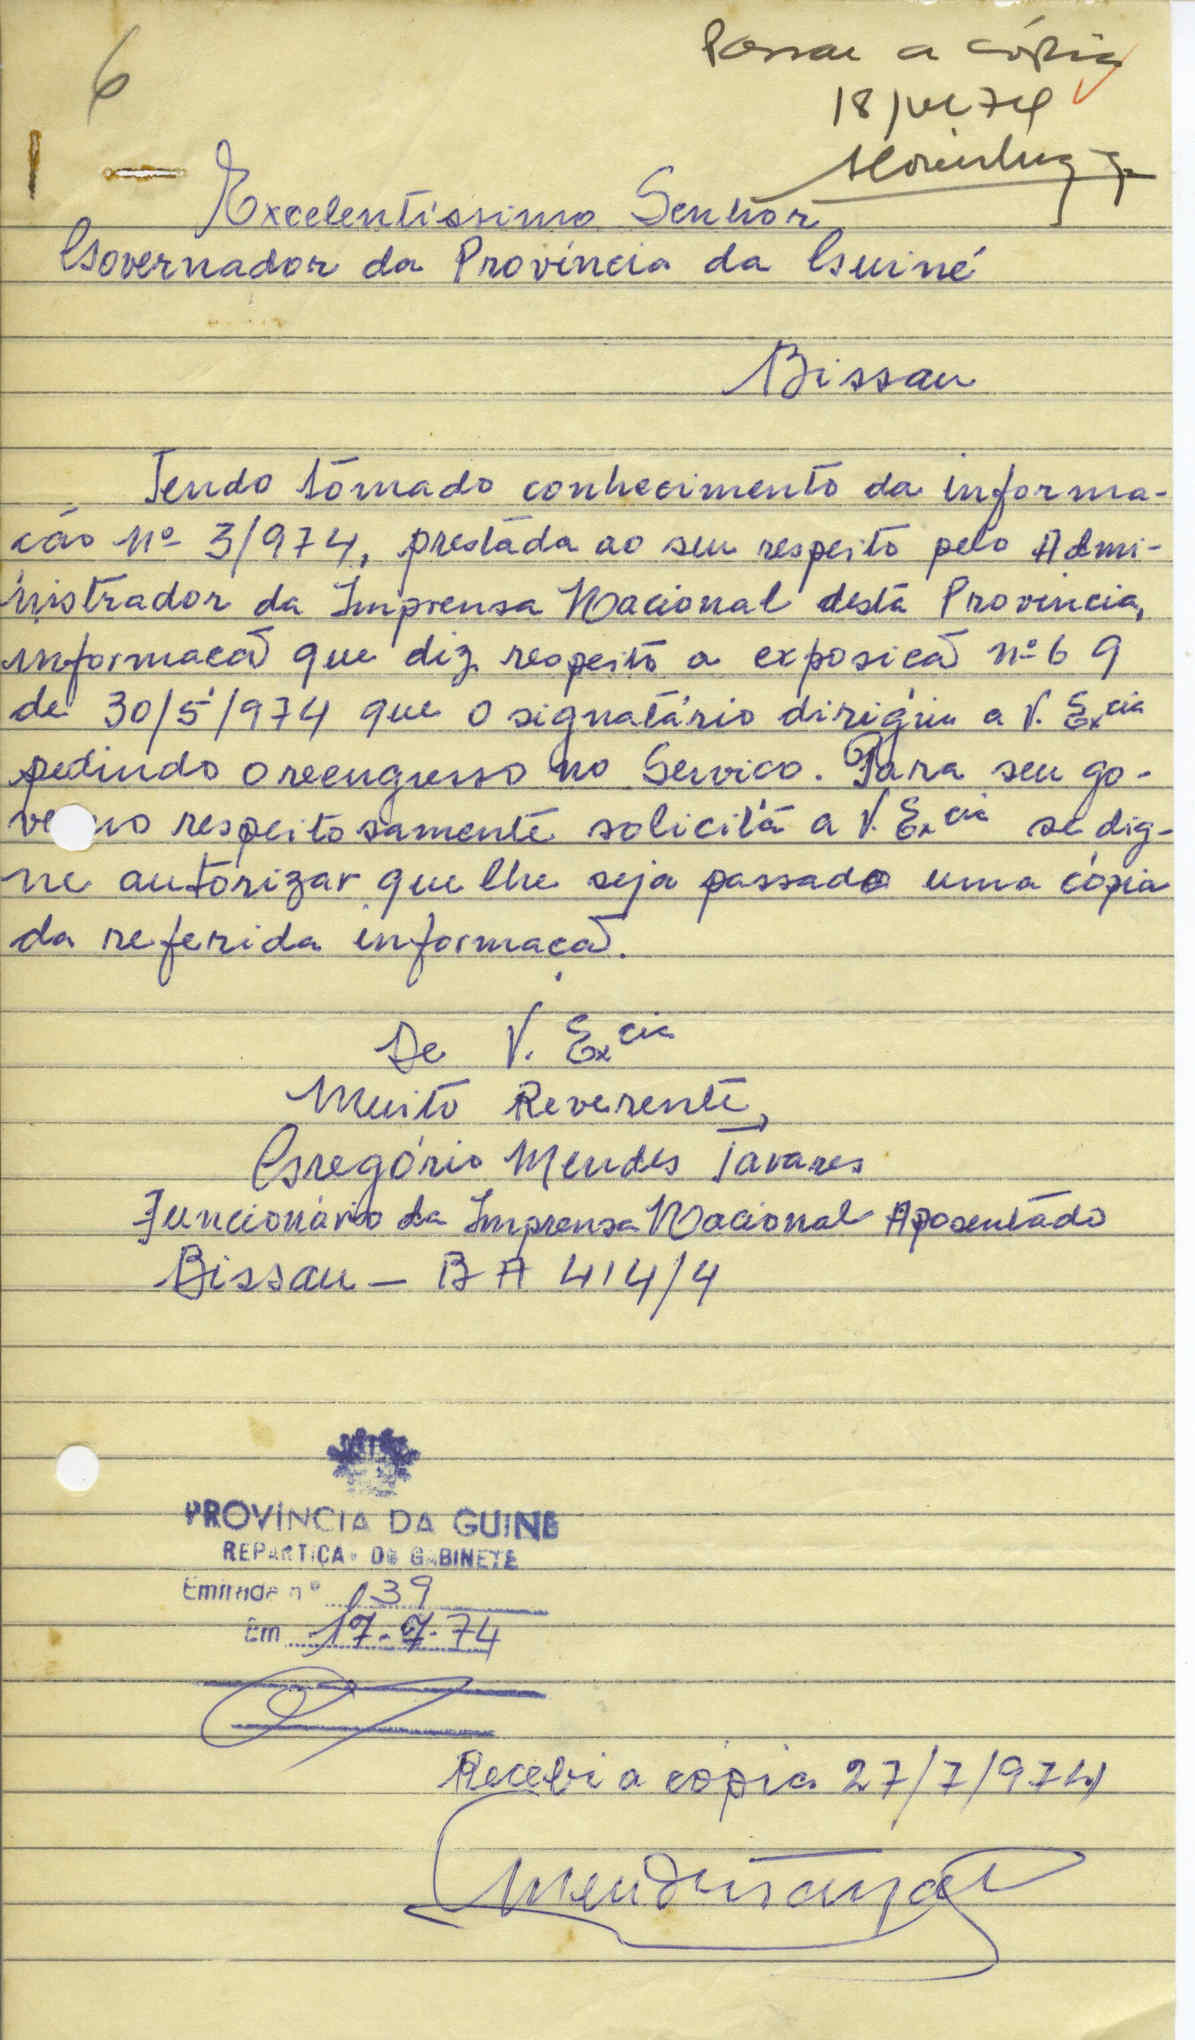 6
Passar a cópia
18 jul 74
Excelentíssimo Senhor
Governador da Província da Guiné
Bissau
Tendo tomado conhecimento da informa-
cão nº 3/974, prestada ao seu respeito pelo Admi-
nistrador da Imprensa Nacional desta Província,
informacão que diz respeito a exposicão nº 69
de 30/5/974 que o signatário dirigiu a V. Excia
pedindo o reengresso no Servico. Para seu go-
verno respeitosamente solicita a V. Excia se dig-
ne autorizar que lhe seja passado uma cópia
da referida informacão.
De V. Excia
Muito Reverente,
Gregório Mendes Tavares
Funcionário da Imprensa Nacional Aposentado
Bissau — BA 414/4
PROVÍNCIA DA GUINÉ
REPARTIÇÃO DE GABINETE
Entrada nº 139
Em 17-7-74
Recebi a cópia 27/7/974